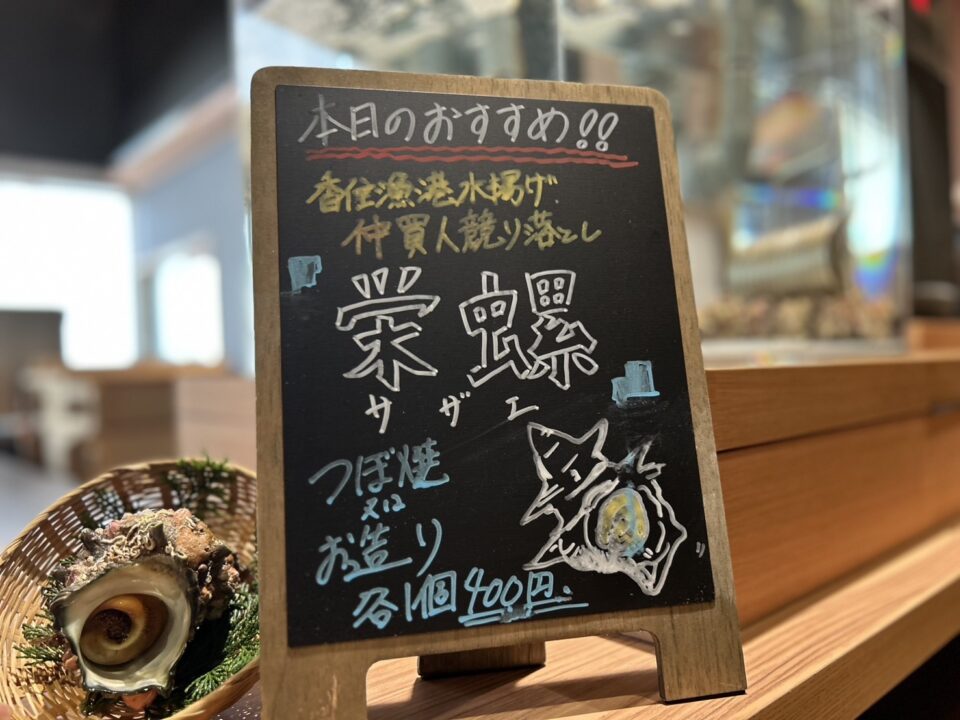 本日のおすすめ!!
香住漁港水揚げ
仲買人競り落とし
「栄螺」
サザエ
つぼ焼
又は
お造り
各1個400円.